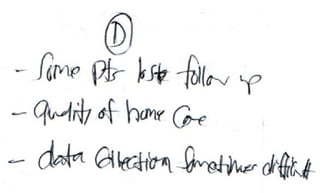 ①
- Some pts lost follow up
- Quality of home Care
- data Collection Sometimes difficult